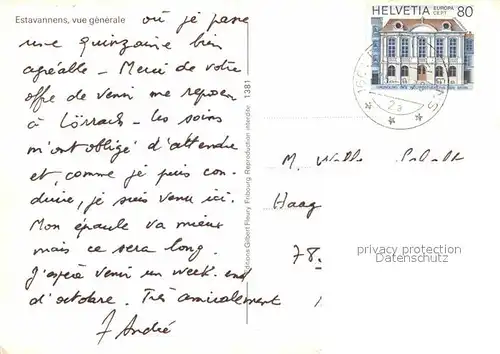 Estavannens, vue générale
où je passe
une quinzaine bien
agréable - Merci de votre
offre de venir me reposer
à Lörrach - les soins
m'ont obligé d'attendre
et comme je puis con-
duire, je suis venu ici.
Mon épaule va mieux
mais ce sera long.
J'espère venir un week-end
d'octobre. Très amicalement
André
Editions Gilbert Fleury Fribourg Reproduction interdite 1381
HELVETIA EUROPA CEPT 80
M.
Haag
78
privacy protection
Datenschutz